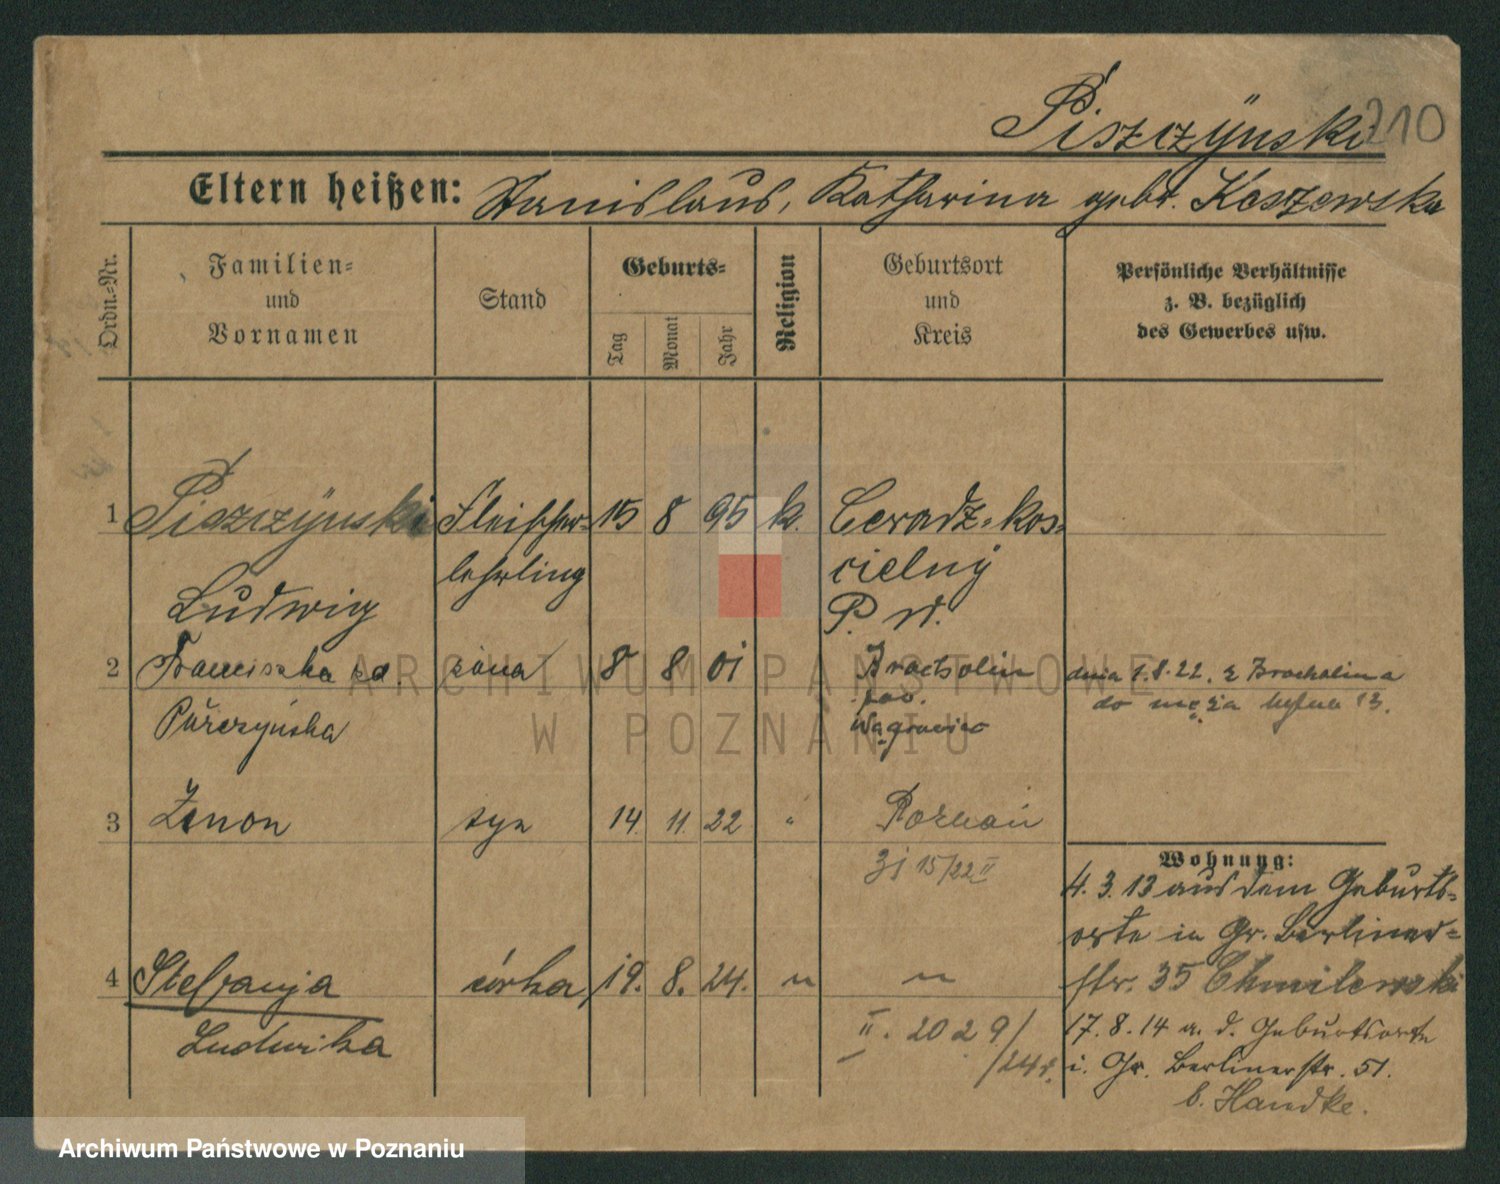 Piszczÿnski 210
Eltern heißen: Stanislaus, Katharina gebr. Koszewska
Ordn.-Nr.
Familien-
und
Vornamen
Stand
Geburts-
Tag
Monat
Jahr
Religion
Geburtsort
und
Kreis
Persönliche Verhältnisse
z. B. bezüglich
des Gewerbes usw.
1 Piszczÿnski Fleischer- 15 8 95 k. Ceradz-kos-
lehrling cielny
Ludwig P. W.
2 Franciszka zd. żona 8 8 01 Brocholin dnia 1.8.22. z Brocholina
pow. do męża
Wągrowiec
3 Zenon syn 14 11 22 " Poznań
15/22 II
Wohnung:
4. 3. 13 aus dem Geburts-
orte in Gr. Berliner-
str. 35 Chmilewski
4 Stefanja córka 19. 8. 24. " "
Ludwika
II. 20 2 9/
/24r.
17. 8. 14 a. d. Geburtsorte
i. Gr. Berlinerstr. 51.
b. Handke.
ARCHIWUM PAŃSTWOWE
W POZNANIU
Archiwum Państwowe w Poznaniu